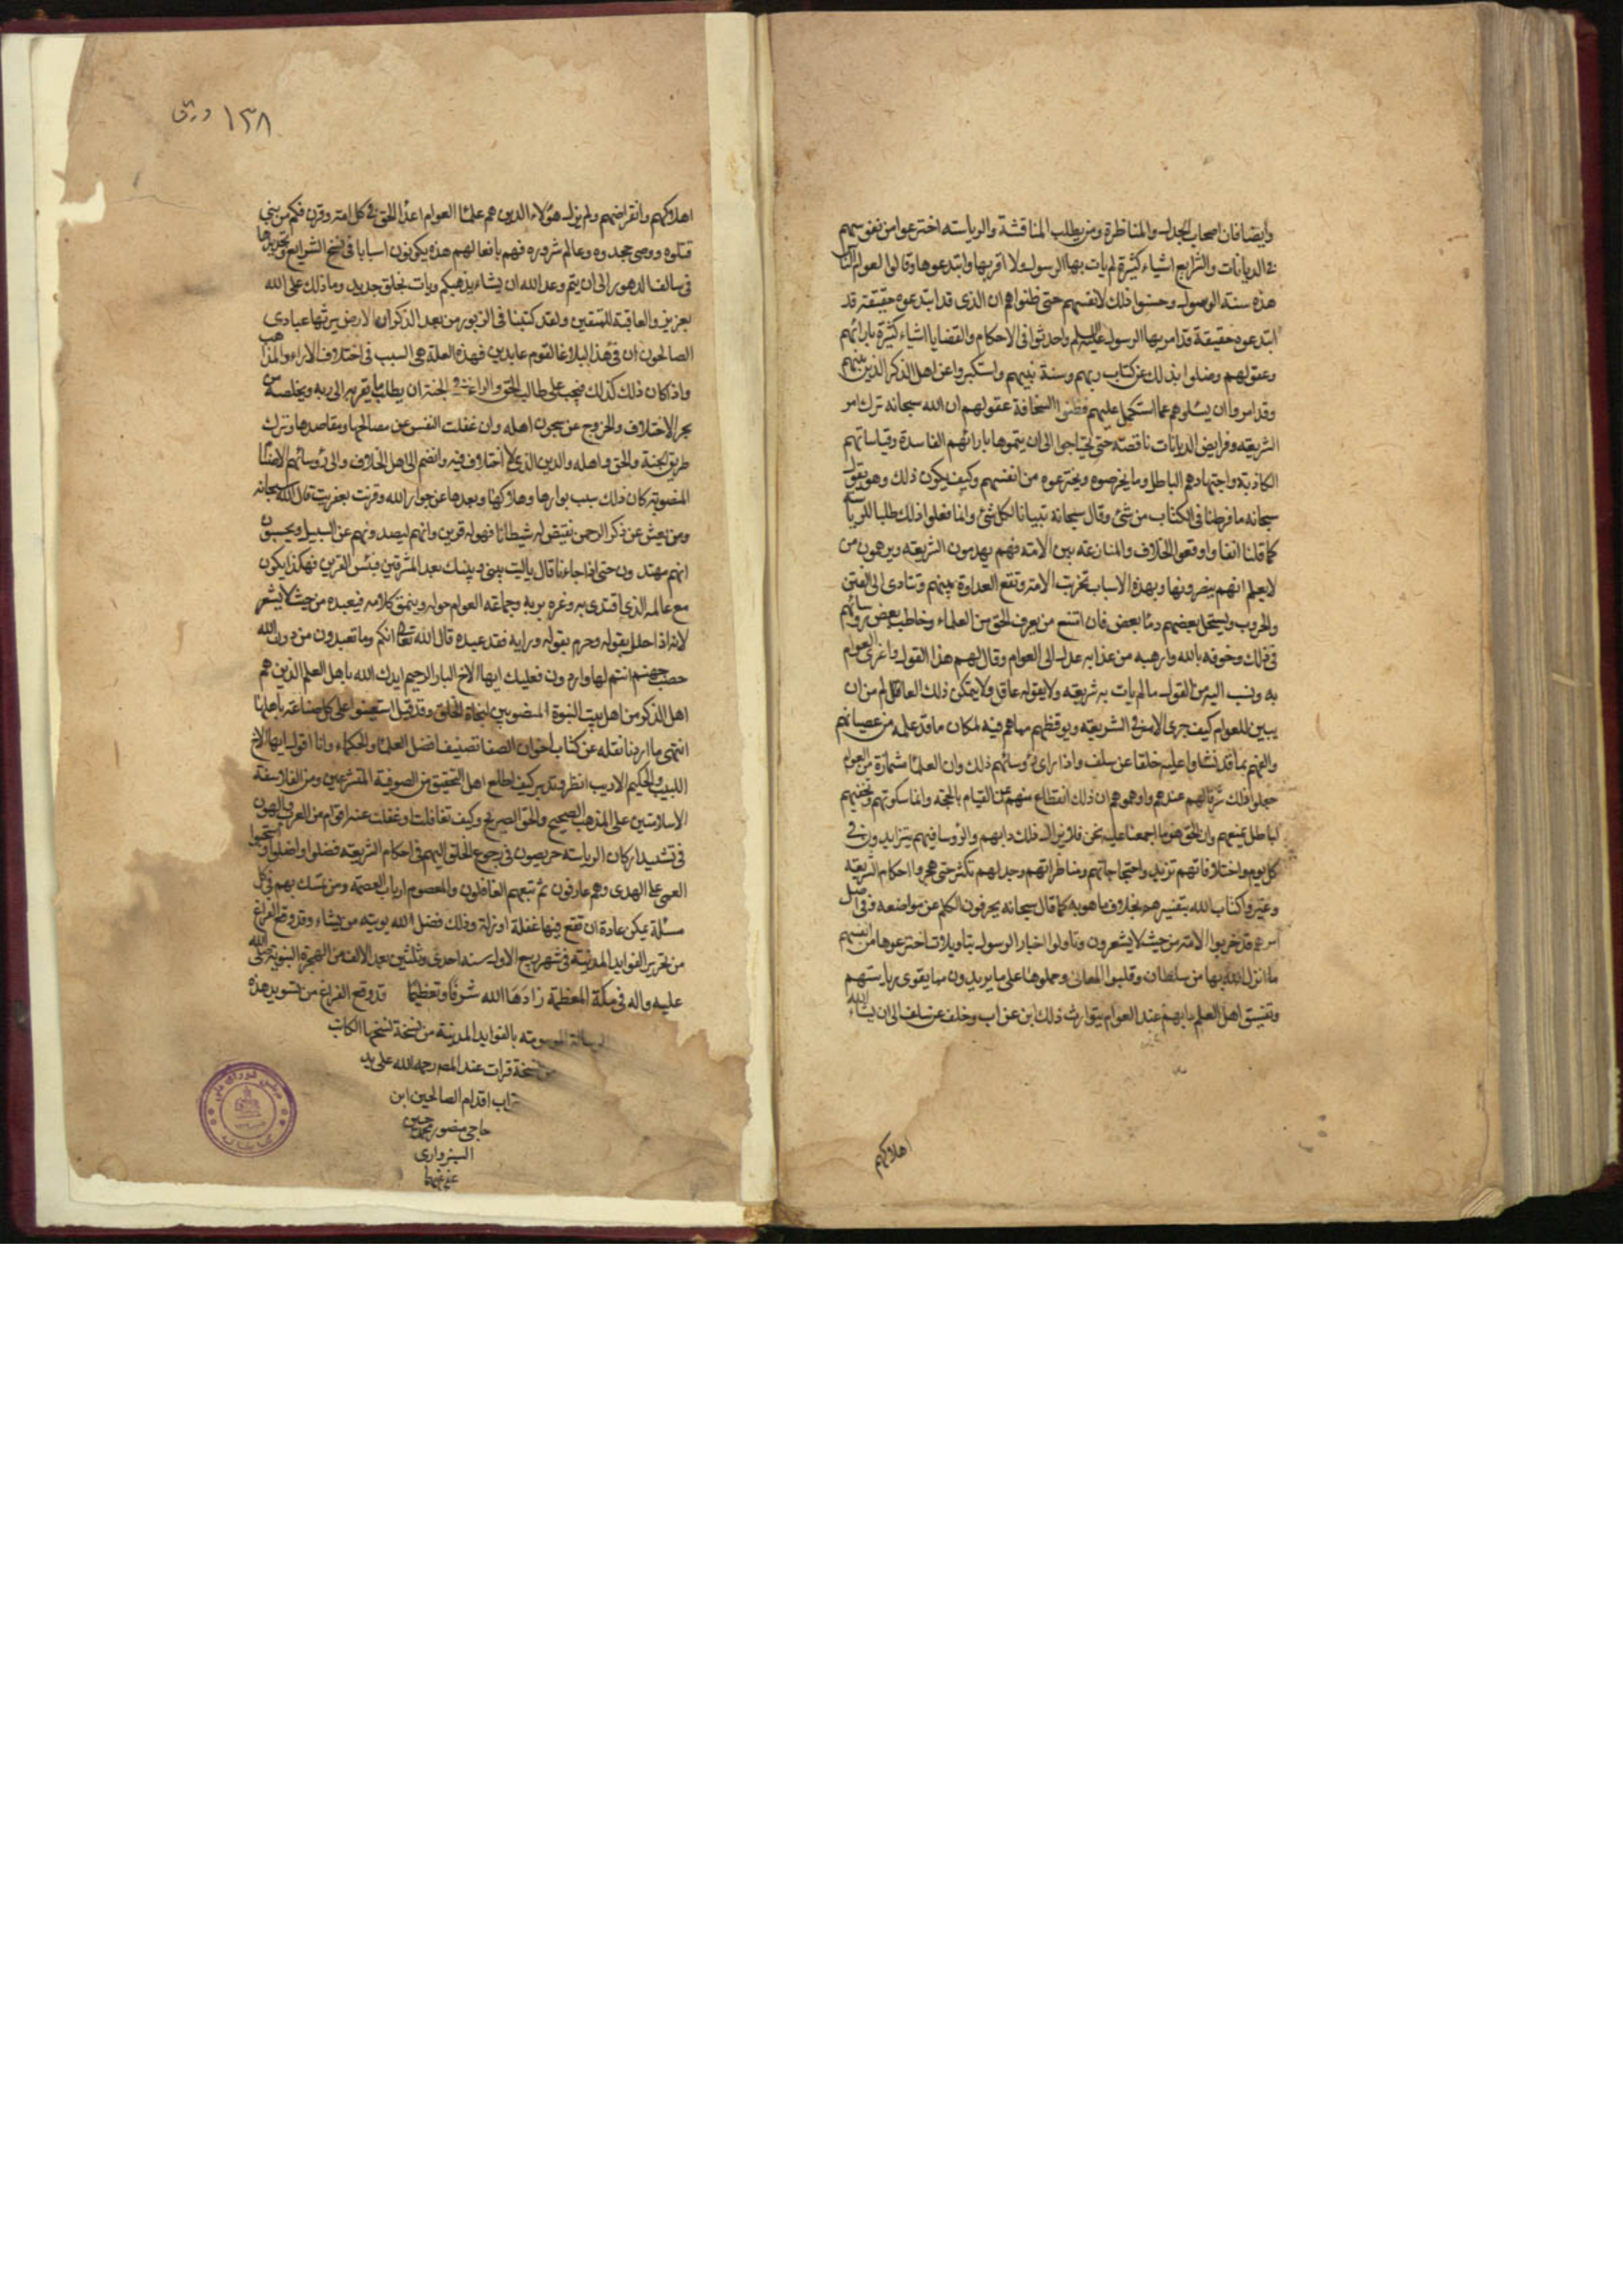 وايضا فان اصحاب الجدل والمناظرة ومن يطلب المناقشة والرياسة اخترعوا من انفسهم
في الديانات والشرايع اشياء كثيرة لم يات بها الرسول ولا اقر بها وابتدعوها وقالوا لعوام الناس
هذه سنة الرسول وحسنوا ذلك لانفسهم حتى ظنوا بهم ان الذي قد ابتدعوه حقيقة قد
ابتدعوه حقيقة قد امر بها الرسول واحدثوا في الاحكام والقضايا اشياء كثيرة بارائهم
وعقولهم وضلوا بذلك عن كتاب ربهم وسنة نبيهم واستكبروا عن اهل الذكر الذين بينهم
وقد امروا ان يسئلوهم عما استشكل عليهم فظنوا لسخافة عقولهم ان الله سبحانه ترك امر
الشريعه وفرايض الديانات ناقصة حتى يحتاجوا الى ان يتموها بارائهم الفاسدة وقياساتهم
الكاذبة واجتهادهم الباطل وما يخرصوه ويخترعوه من انفسهم وكيف يكون ذلك وهو يقول
سبحانه ما فرطنا في الكتاب من شئ وقال سبحانه تبيانا لكل شئ وانما فعلوا ذلك طلبا للرياسة
كما قلنا انفا واوقعوا الخلاف والمنازعة بين الامة فهم يهدمون الشريعه ويوهمون من
لا يعلم انهم ينصرونها وبهذه الاسباب تخربت الامة وتقع العداوة بينهم وتتادى الى الفتن
والحروب ويستحل بعضهم دماء بعض فان امتنع من يعرف الحق من العلماء وخاطب بعض رؤسائهم
في ذلك وخوفه بالله وارهبه من عذابه عدل الى العوام وقال لهم هذا القول واغرى العوام
به ونسب اليه من القول ما لم يات به شريعه ولا يقوله عاقل ولا يتمكن ذلك العاقل من ان
يبين للعوام كيف جرى الامر في الشريعه ويوقظهم مما هم فيه لمكان ما قد علمه من عصيانهم
والفهم بما قد نشاوا عليه خلفا عن سلف واذا راى رؤسائهم ذلك وان العلماء مشمازة من العوام
جعلوا ذلك شرفا لهم عندهم واوهموهم ان ذلك انقطاع منهم عن القيام بالحجة وانما سكوتهم وتخفيهم
لباطل يمنعهم وان الحق هو ما اجمعنا عليه نحن فلا يزال ذلك دابهم والرؤسا فيهم يتزايدون في
كل يوم واختلافاتهم تزيد واحتجاجاتهم ومناظراتهم وجدلهم تكثر حتى هجروا احكام الشريعه
وغيروا كتاب الله بتفسيرهم بخلاف ما هو به كما قال سبحانه يحرفون الكلم عن مواضعه وفي اصل
امرهم قد خربوا الامة من حيث لا يشعرون وتاولوا اخبار الرسول بتاويلات اخترعوها من انفسهم
ما انزل الله بها من سلطان وقلبوا المعانى وحملوها على ما يريدون مما يقوى رياستهم
وتفسيق اهل العلم دابهم عند العوام يتوارث ذلك ابن عن اب وخلف عن سلف الى ان يشاء الله
اهلاكهم
١٣٨ ورق
اهلاكهم وانقراضهم ولم يزل هؤلاء الذين هم علماء العوام اعداء الحق في كل امة وقرن فكم من نبي
قتلوه ووصى جحدوه وعالم شردوه فهم بافعالهم هذه يكونون اسبابا في نسخ الشرايع وتجديدها
في سالف الدهور الى ان يتم وعد الله ان يشاء يذهبكم ويات بخلق جديد وما ذلك على الله
بعزيز والعاقبة للمتقين ولقد كتبنا في الزبور من بعد الذكر ان الارض يرثها عبادى
الصالحون ان في هذا لبلاغا لقوم عابدين فهذه العلة هى السبب في اختلاف الاراء والمذاهب
واذا كان ذلك كذلك فيجب على طالب الحق والراغب في الجنة ان يطلب ما يقربه الى ربه ويخلصه من
بحر الاختلاف والخروج عن سجون اهله وان غفلت النفس عن مصالحها ومقاصدها وترك
طريق الجنة والحق واهله والدين الذي لا اختلاف فيه وانضم الى اهل الخلاف والى رؤسائهم الاصنام
المنصوبة كان ذلك سبب بوارها وهلاكها وبعدها عن جوار الله وقرنت بعفريت قال الله سبحانه
ومن يعش عن ذكر الرحمن نقيض له شيطانا فهو له قرين وانهم ليصدونهم عن السبيل ويحسبون
انهم مهتدون حتى اذا جاءنا قال يا ليت بيني وبينك بعد المشرقين فبئس القرين فهكذا يكون
مع عالمه الذي اقتدى به وغره بربه وجماعة العوام حوله وينمق كلامه فيعبده من حيث لا يشعر
لانه اذا حلل بقوله وحرم بقوله ورايه فقد عبده قال الله تعالى انكم وما تعبدون من دون الله
حصب جهنم انتم لها واردون فعليك ايها الاخ البار الرحيم ايدك الله باهل العلم الذين هم
اهل الذكر من اهل بيت النبوة المنصوبين لنجاة الخلق وقد قيل استعينوا على كل صناعة باهلها
انتهى ما اردنا نقله عن كتاب اخوان الصفا تصنيف افضل العلماء والحكماء وانا اقول ايها الاخ
اللبيب والحكيم الاديب انظر وتدبر كيف اطلع اهل التحقيق من الصوفية المتشرعين ومن الفلاسفة
الاسلاميين على المذهب الصحيح والحق الصريح وكيف تغافلت او غفلت عنه اقوام من العرب والهون
في تشييد اركان الرياسة حريصون في رجوع الخلق اليهم في احكام الشريعه فضلوا واضلوا واستحبوا
العمى على الهدى وهم عارفون ثم تبعهم الغافلون والمعصوم ارباب العصمة ومن تمسك بهم في كل
مسئلة يمكن عادة ان تقع فيها غفلة او زلة وذلك فضل الله يوتيه من يشاء وقد وقع الفراغ
من تحرير الفوايد المدنية في شهر ربيع الاول سنه احدى وثلثين بعد الالف من الهجرة النبوية صلى الله
عليه واله في مكة المعظمة زادها الله شرفا وتعظيما قد وقع الفراغ من تسويد هذه
الرسالة الموسومة بالفوايد المدنية من نسخة نسخها الكاتب
من نسخة قرات عند المصـ رحمه الله على يد
تراب اقدام الصالحين ابن
حاجى منصور محمد حسين
السبزوارى
عفى عنهما